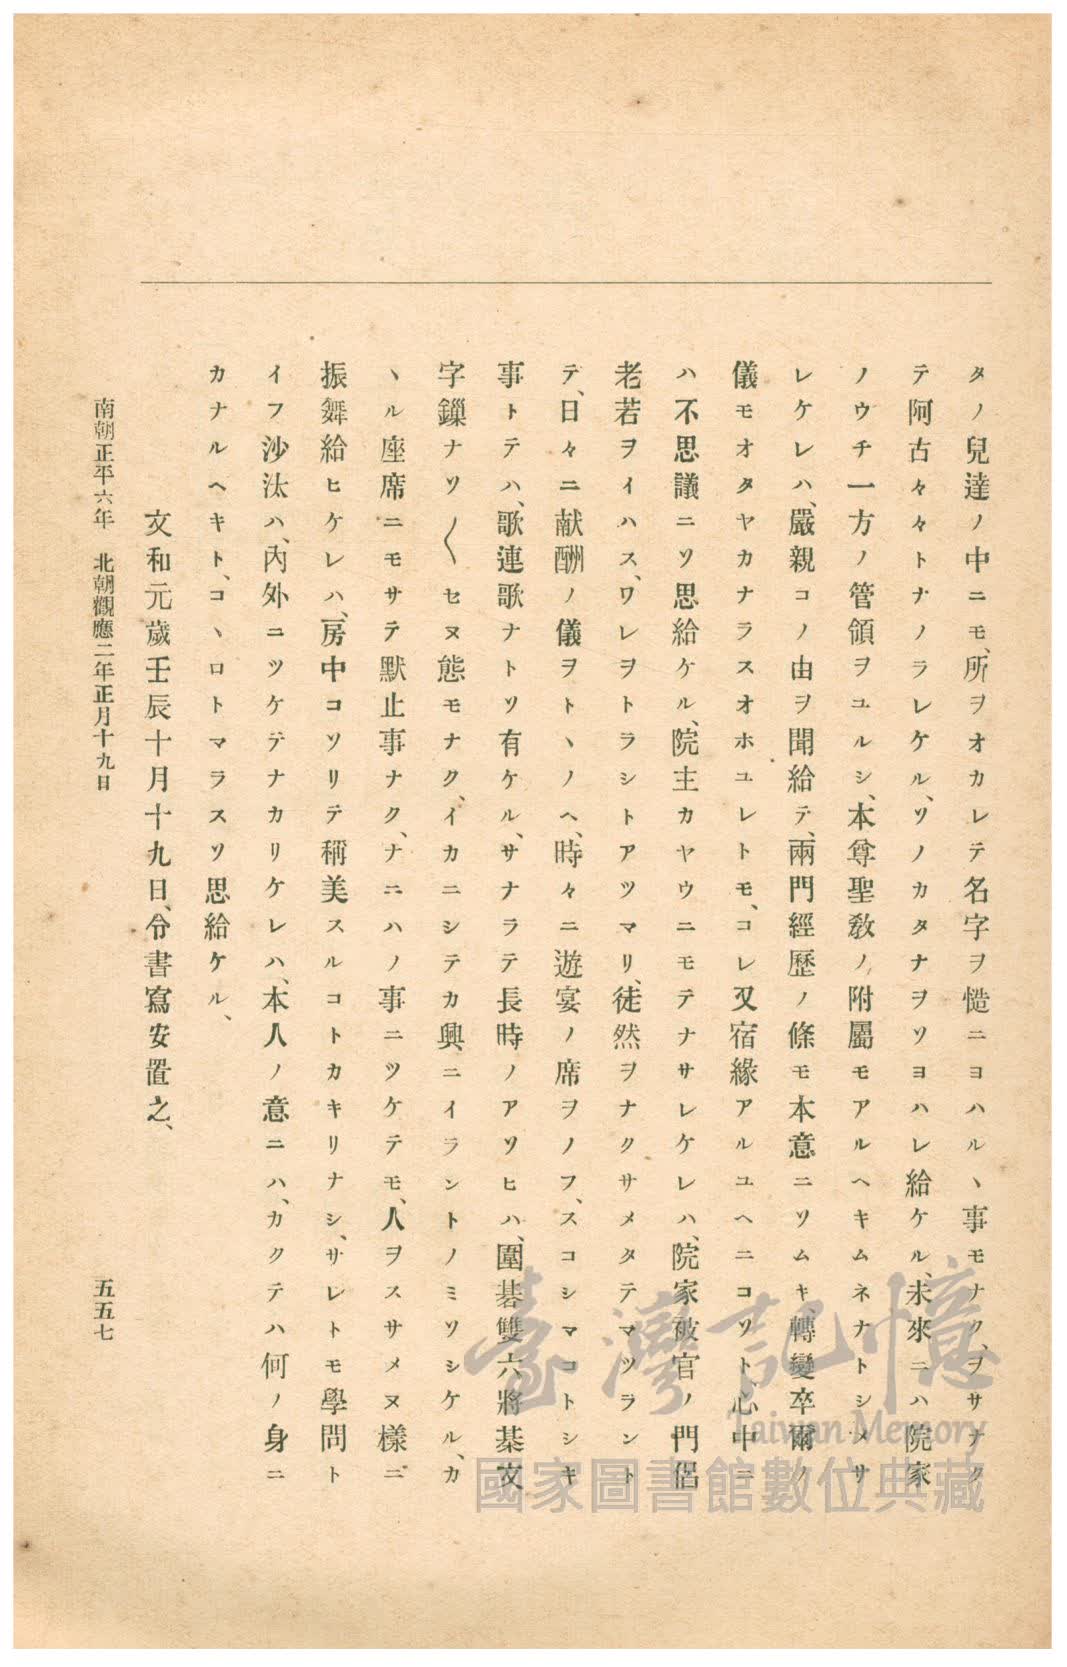 タノ兒達ノ中ニモ、所ヲオカレテ名字ヲ慥ニヨハルヽ事モナク、ヲサナク
テ阿古々々トナノラレケル、ソノカタナヲソヨハレ給ケル、未來ニハ院家
ノウチ一方ノ管領ヲユルシ、本尊聖敎ノ附屬モアルヘキムネナトシメサ
レケレハ、嚴親コノ由ヲ聞給テ、兩門經歷ノ條モ本意ニソムキ、轉變卒爾ノ
儀モオタヤカナラスオホユレトモ、コレ又宿緣アルユヘニコソト、心中ニ
ハ不思議ニソ思給ケル、院主カヤウニモテナサレケレハ、院家被官ノ門侶
老若ヲイハス、ワレヲトラシトアツマリ、徒然ヲナクサメタテマツラント
テ、日々ニ献酬ノ儀ヲトヽノヘ、時々ニ遊宴ノ席ヲノフ、スコシマコトシキ
事トテハ、歌連歌ナトソ有ケル、サナラテ長時ノアソヒハ、圍碁雙六將棊文
字鏁ナソ〱セヌ態モナク、イカニシテカ興ニイラントノミソシケル、カ
ヽル座席ニモサテ默止事ナク、ナニハノ事ニツケテモ、人ヲスサメヌ樣ニ
振舞給ヒケレハ、房中コソリテ稱美スルコトカキリナシ、サレトモ學問ト
イフ沙汰ハ、內外ニツケテナカリケレハ、本人ノ意ニハ、カクテハ何ノ身ニ
カナルヘキト、コヽロトマラスソ思給ケル、
文和元歲壬辰十月十九日、令書寫安置之、
南朝正平六年 北朝觀應二年正月十九日
五五七
臺灣記憶
Taiwan Memory
國家圖書館數位典藏